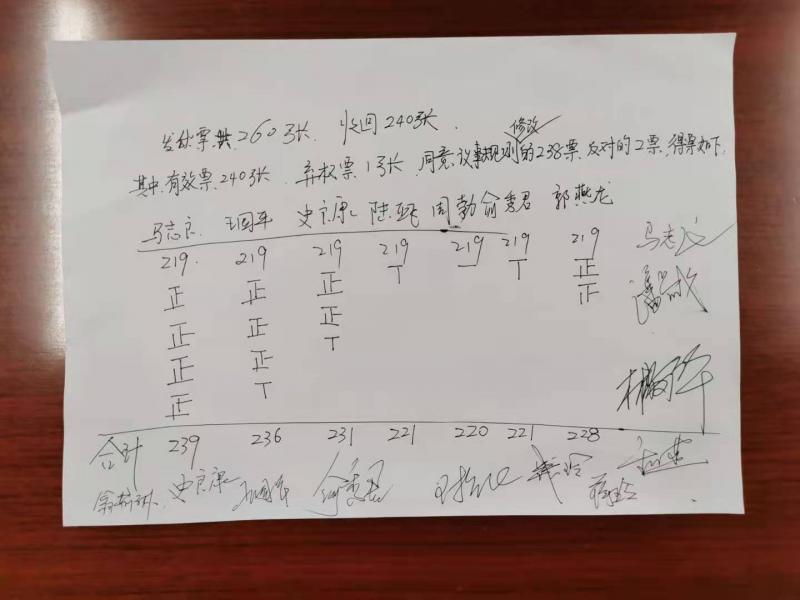 发选票共260张、收回240张、
修改
其中、有效票、240张、弃权票1张、同意议事规则的238票、反对的2票、得票如下、
马志良、王国平 史良康、 陆 周勃 俞秀君 郭燕龙
219. 219 219 219 219 219 219 马志良
正 正 正 丅 一 丅 正
正 正 正 正
正 正 丅
正 丅
合计 239 236 231 221 220 221 228
史良康 王国平 俞秀君